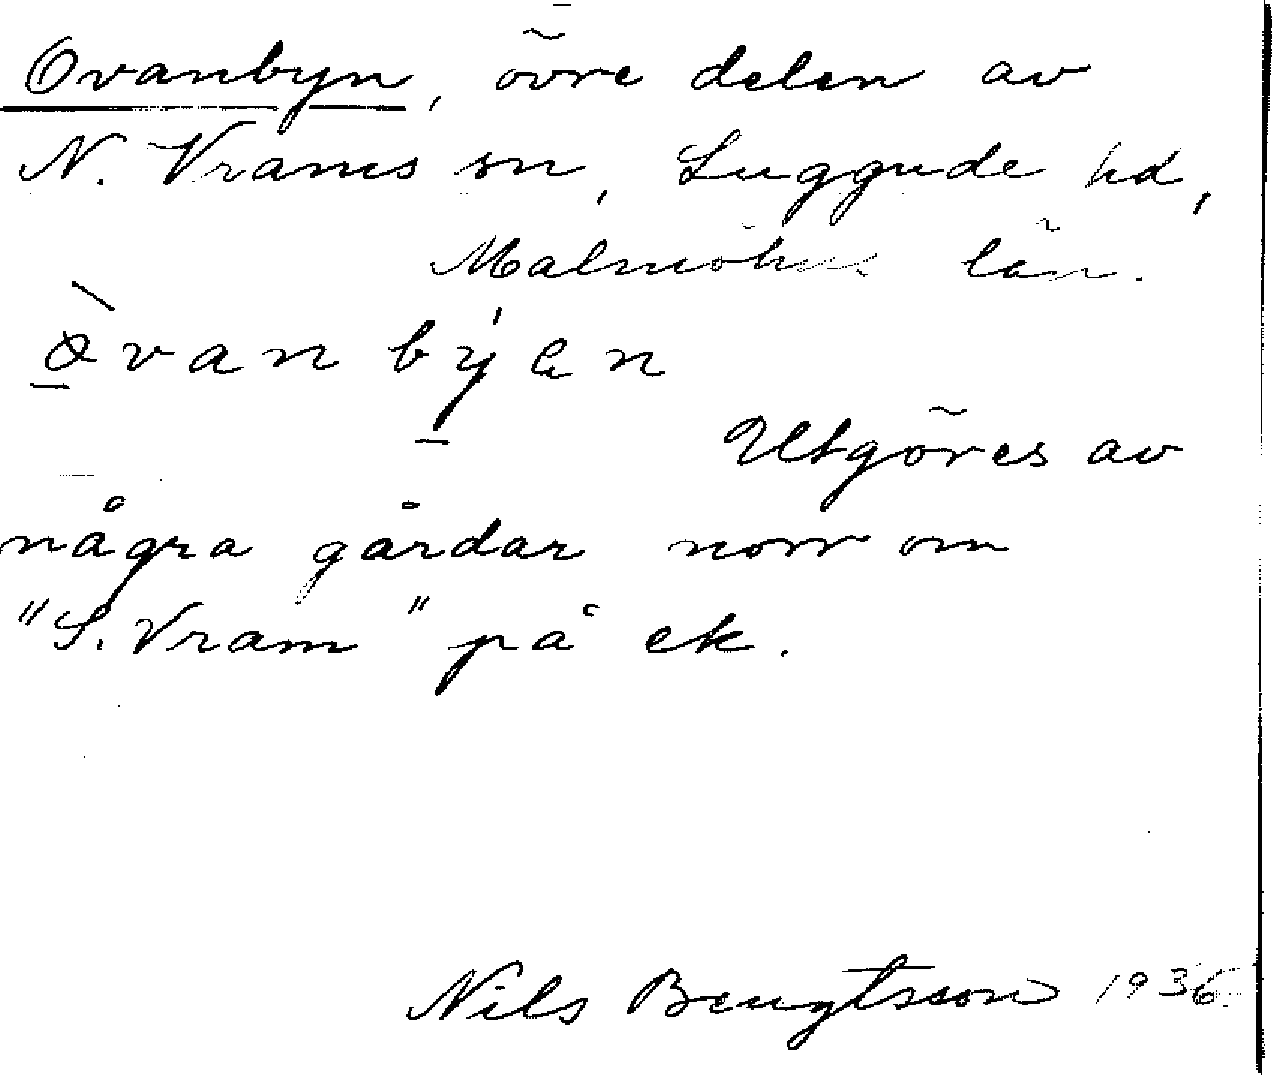 Ovanbyn, övre delen av
N. Vrams sn, Luggude hd,
Malmöhus län.
òvanbýen
Utgöres av
några gårdar norr om
"S. Vram" på ek.
Nils Bengtsson 1936.